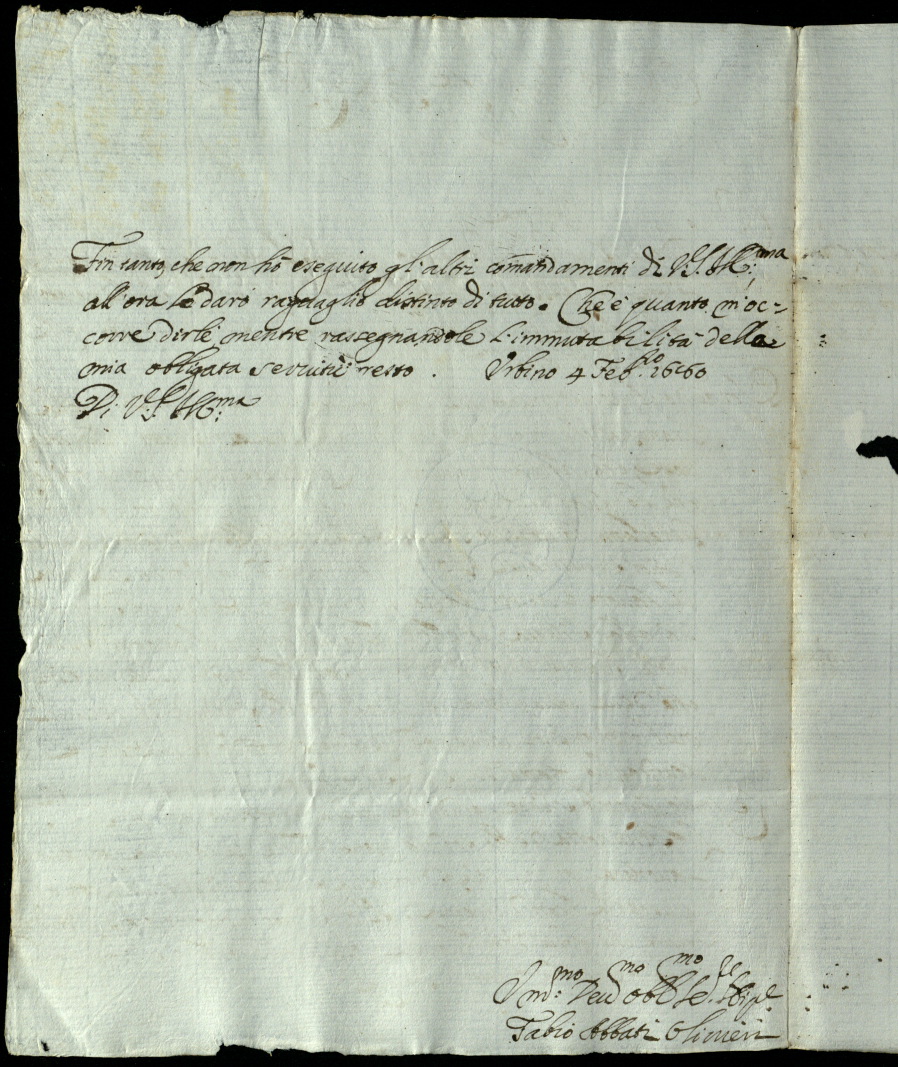 Fin tanto, che non hò eseguito gl'altri comandamenti di V.S. Ill:ma
all'ora le darò raguaglio distinto di tutto. Che è quanto m'oc=
corre dirle, mentre rassegnandole l'immutabilità della
mia obligata servitù resto. Urbino 4 Feb.ro 1660
Di V.S. Ill:ma
mo mo mo le
Dev obb Se.
Fabio Abbati Olivieri